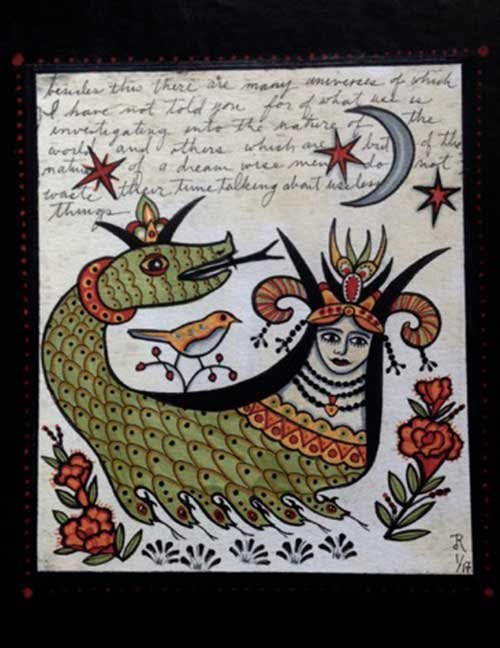 besides this there are many universes of which
I have not told you for of what use is
investigating into the nature of the
world and others which are but of the
nature of a dream wise men do not
waste their time talking about useless
things
R
1/17